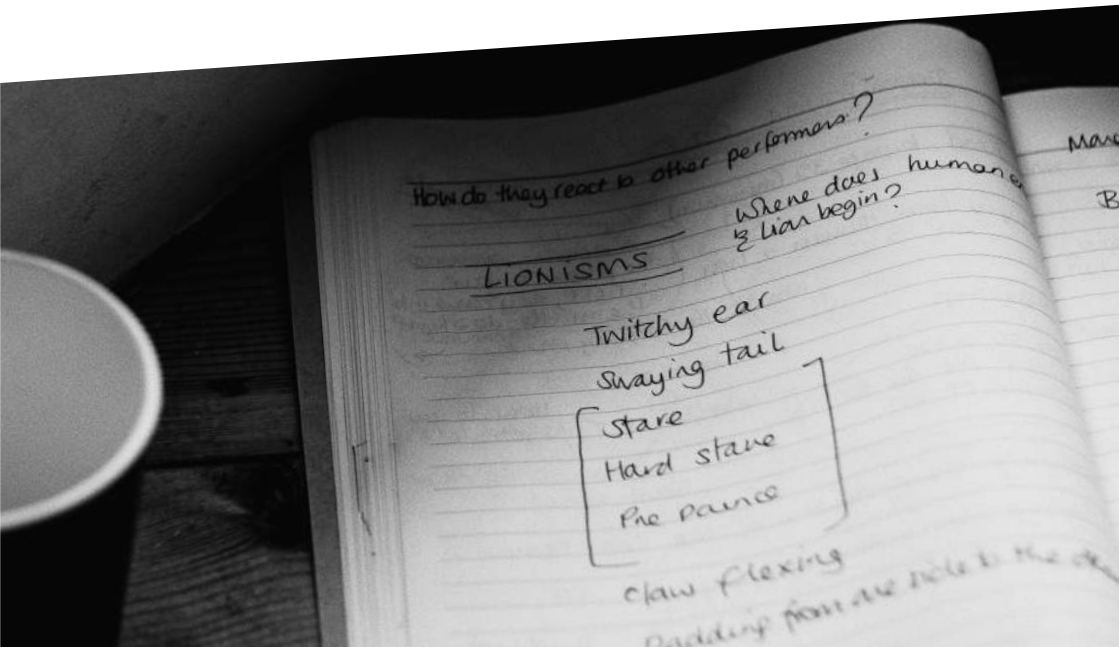 How do they react to other performers?
Where does human
& Lion begin?
LIONISMS
Twitchy ear
Swaying tail
Stare
Hard stare
Pre pounce
Claw flexing
Padding from one side to the